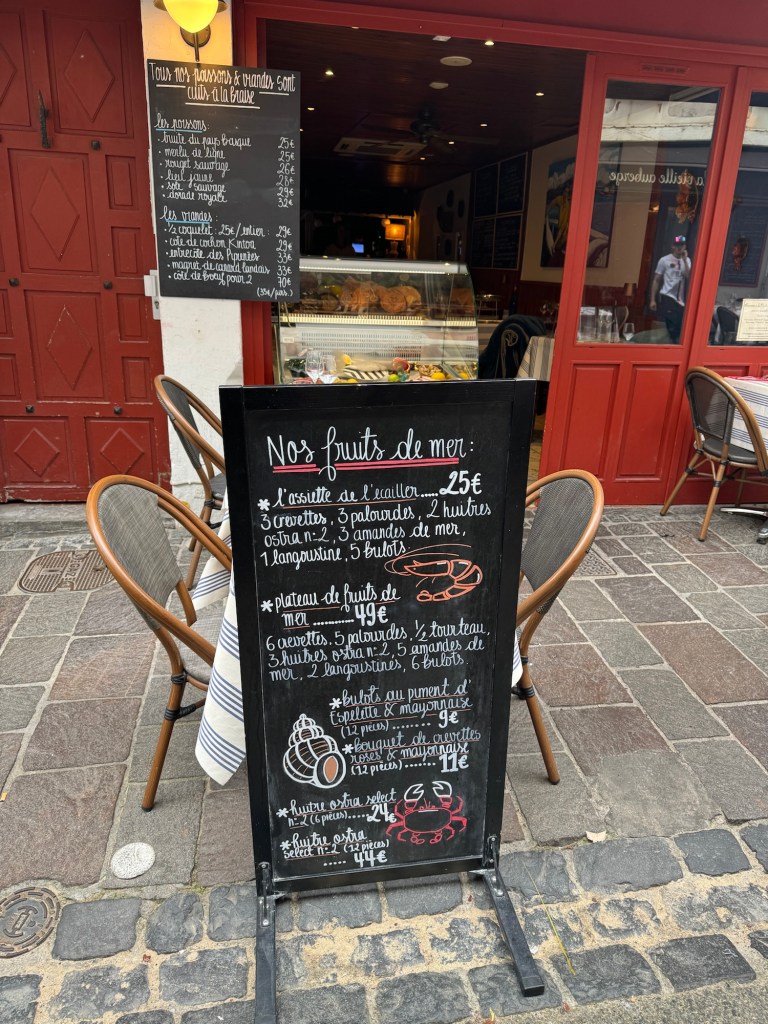 Tous nos poissons & viandes sont
cuits à la braise
les poissons:
• truite du pays Basque 25€
• merlu de ligne 25€
• rouget sauvage 26€
• lieu jaune 28€
• sole sauvage 29€
• dorade royale 32€
les viandes:
• ½ coquelet: 25€/entier: 29€
• côte de cochon Kintoa 29€
• entrecôte des Pyrénées 33€
• magret de canard landais 33€
• côte de bœuf pour 2 70€
(35€/pers)
a vieille auberge
Nos fruits de mer:
* l'assiette de l'écailler.....25€
3 crevettes, 3 palourdes, 2 huîtres
ostra n:2, 3 amandes de mer,
1 langoustine, 5 bulots.
* plateau de fruits de
mer ..........49€
6 crevettes, 5 palourdes, ½ tourteau,
3 huîtres ostra n:2, 5 amandes de
mer, 2 langoustines, 6 bulots.
* bulots au piment d'
Espelette & mayonnaise
(12 pièces) ........ 9€
* bouquet de crevettes
roses & mayonnaise
(12 pièces) ...... 11€
* huître ostra select
n:2 (6 pièces)....24€
* huître ostra
select n:2 (12 pièces)
..... 44€